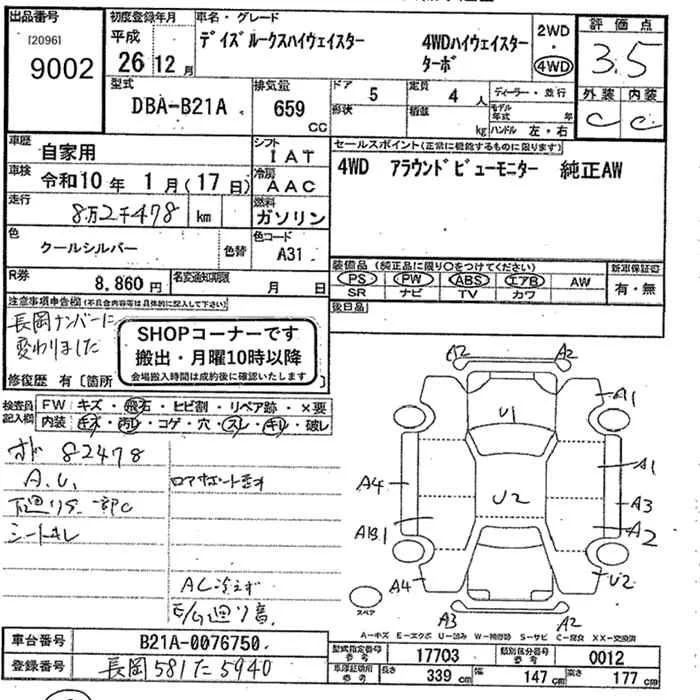 出品番号
[2096]
9002
初度登録年月
平成
26年12月
車名・グレード
デイズルークスハイウェイスター 4WDハイウェイスター
ターボ
2WD
・
4WD
評価点
3.5
外装 内装
C C
型式
DBA-B21A
排気量
659
CC
ドア
5
定員
4人
ディーラー・並行
形状
積載
kg
モデル
年式 年
ハンドル 左・右
車歴
自家用
シフト
IAT
セールスポイント(正常に機能するものに限ります)
4WD アラウンドビューモニター 純正AW
車検
令和10年 1月(17日)
冷房
AAC
走行
8万2千478 km
燃料
ガソリン
色
クールシルバー
色替
色コード
A31
装備品(純正品に限り○をつけてください)
PS PW ABS エアB AW
SR ナビ TV カワ
新車保証書
有・無
R券
8,860円
名変通知期限
月 日
後日品
注意事項申告欄(不具合内容等は具体的に記入して下さい)
長岡ナンバーに
変わりました
SHOPコーナーです
搬出・月曜10時以降
会場搬入時間は成約後に確認いたします
修復歴 有〔箇所
検査員
記入欄
FW キズ・飛石・ヒビ割・リペア跡・×要
内装 キズ・汚レ・コゲ・穴・スレ・キレ・破レ
オド 82478
A.U,
下廻りサ一部C
シートキレ
AC冷えず
E/G廻り音
A2 A2
A1
U1
A1
A4
U2
A3
A2
A4
U2
スペア
A3 A2
A-キズ E-エクボ U-凹み W-補修跡 S-サビ C-腐食 XX-交換済
車台番号
B21A-0076750
登録番号
長岡581た5940
型式指定番号
参考
17703
類別区分番号
参考
0012
車庫証明用
参考
長さ
339cm
幅
147cm
高さ
177cm